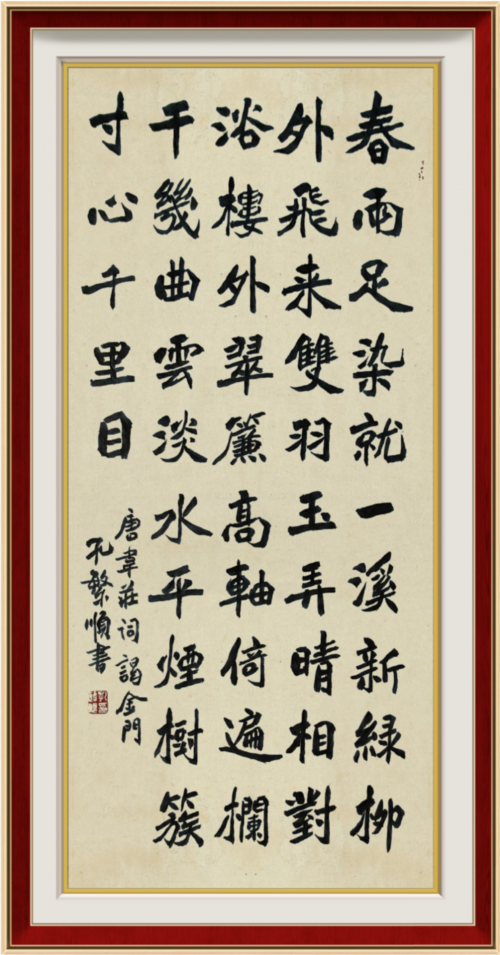 春雨足染就一溪新緑柳
外飛来雙羽玉弄晴相對
浴樓外翠簾髙軸倚遍欄
干幾曲雲淡水平煙樹簇
寸心千里目
唐韋莊詞謁金門
孔繁順書